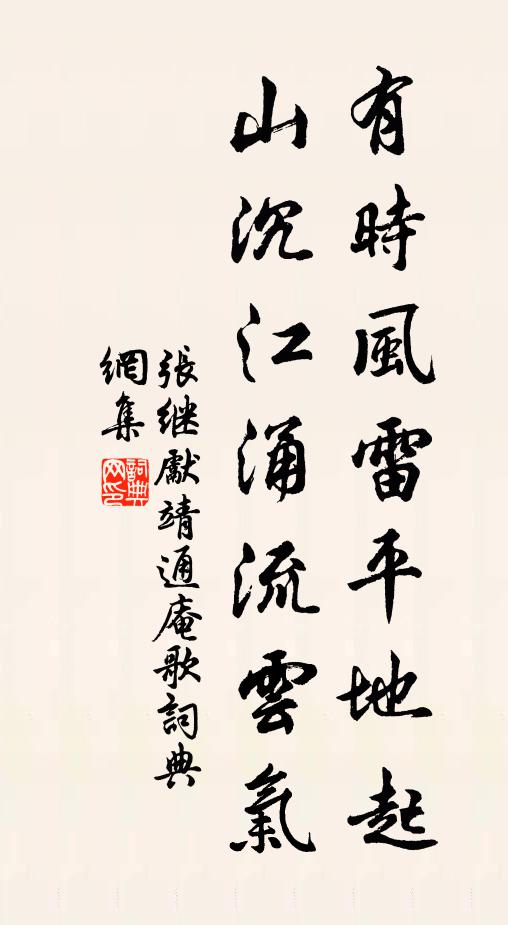 有時風雷平地起
山沉江涌流雲氣
張继獻靖通庵歌詞典
網集
詞典
网印